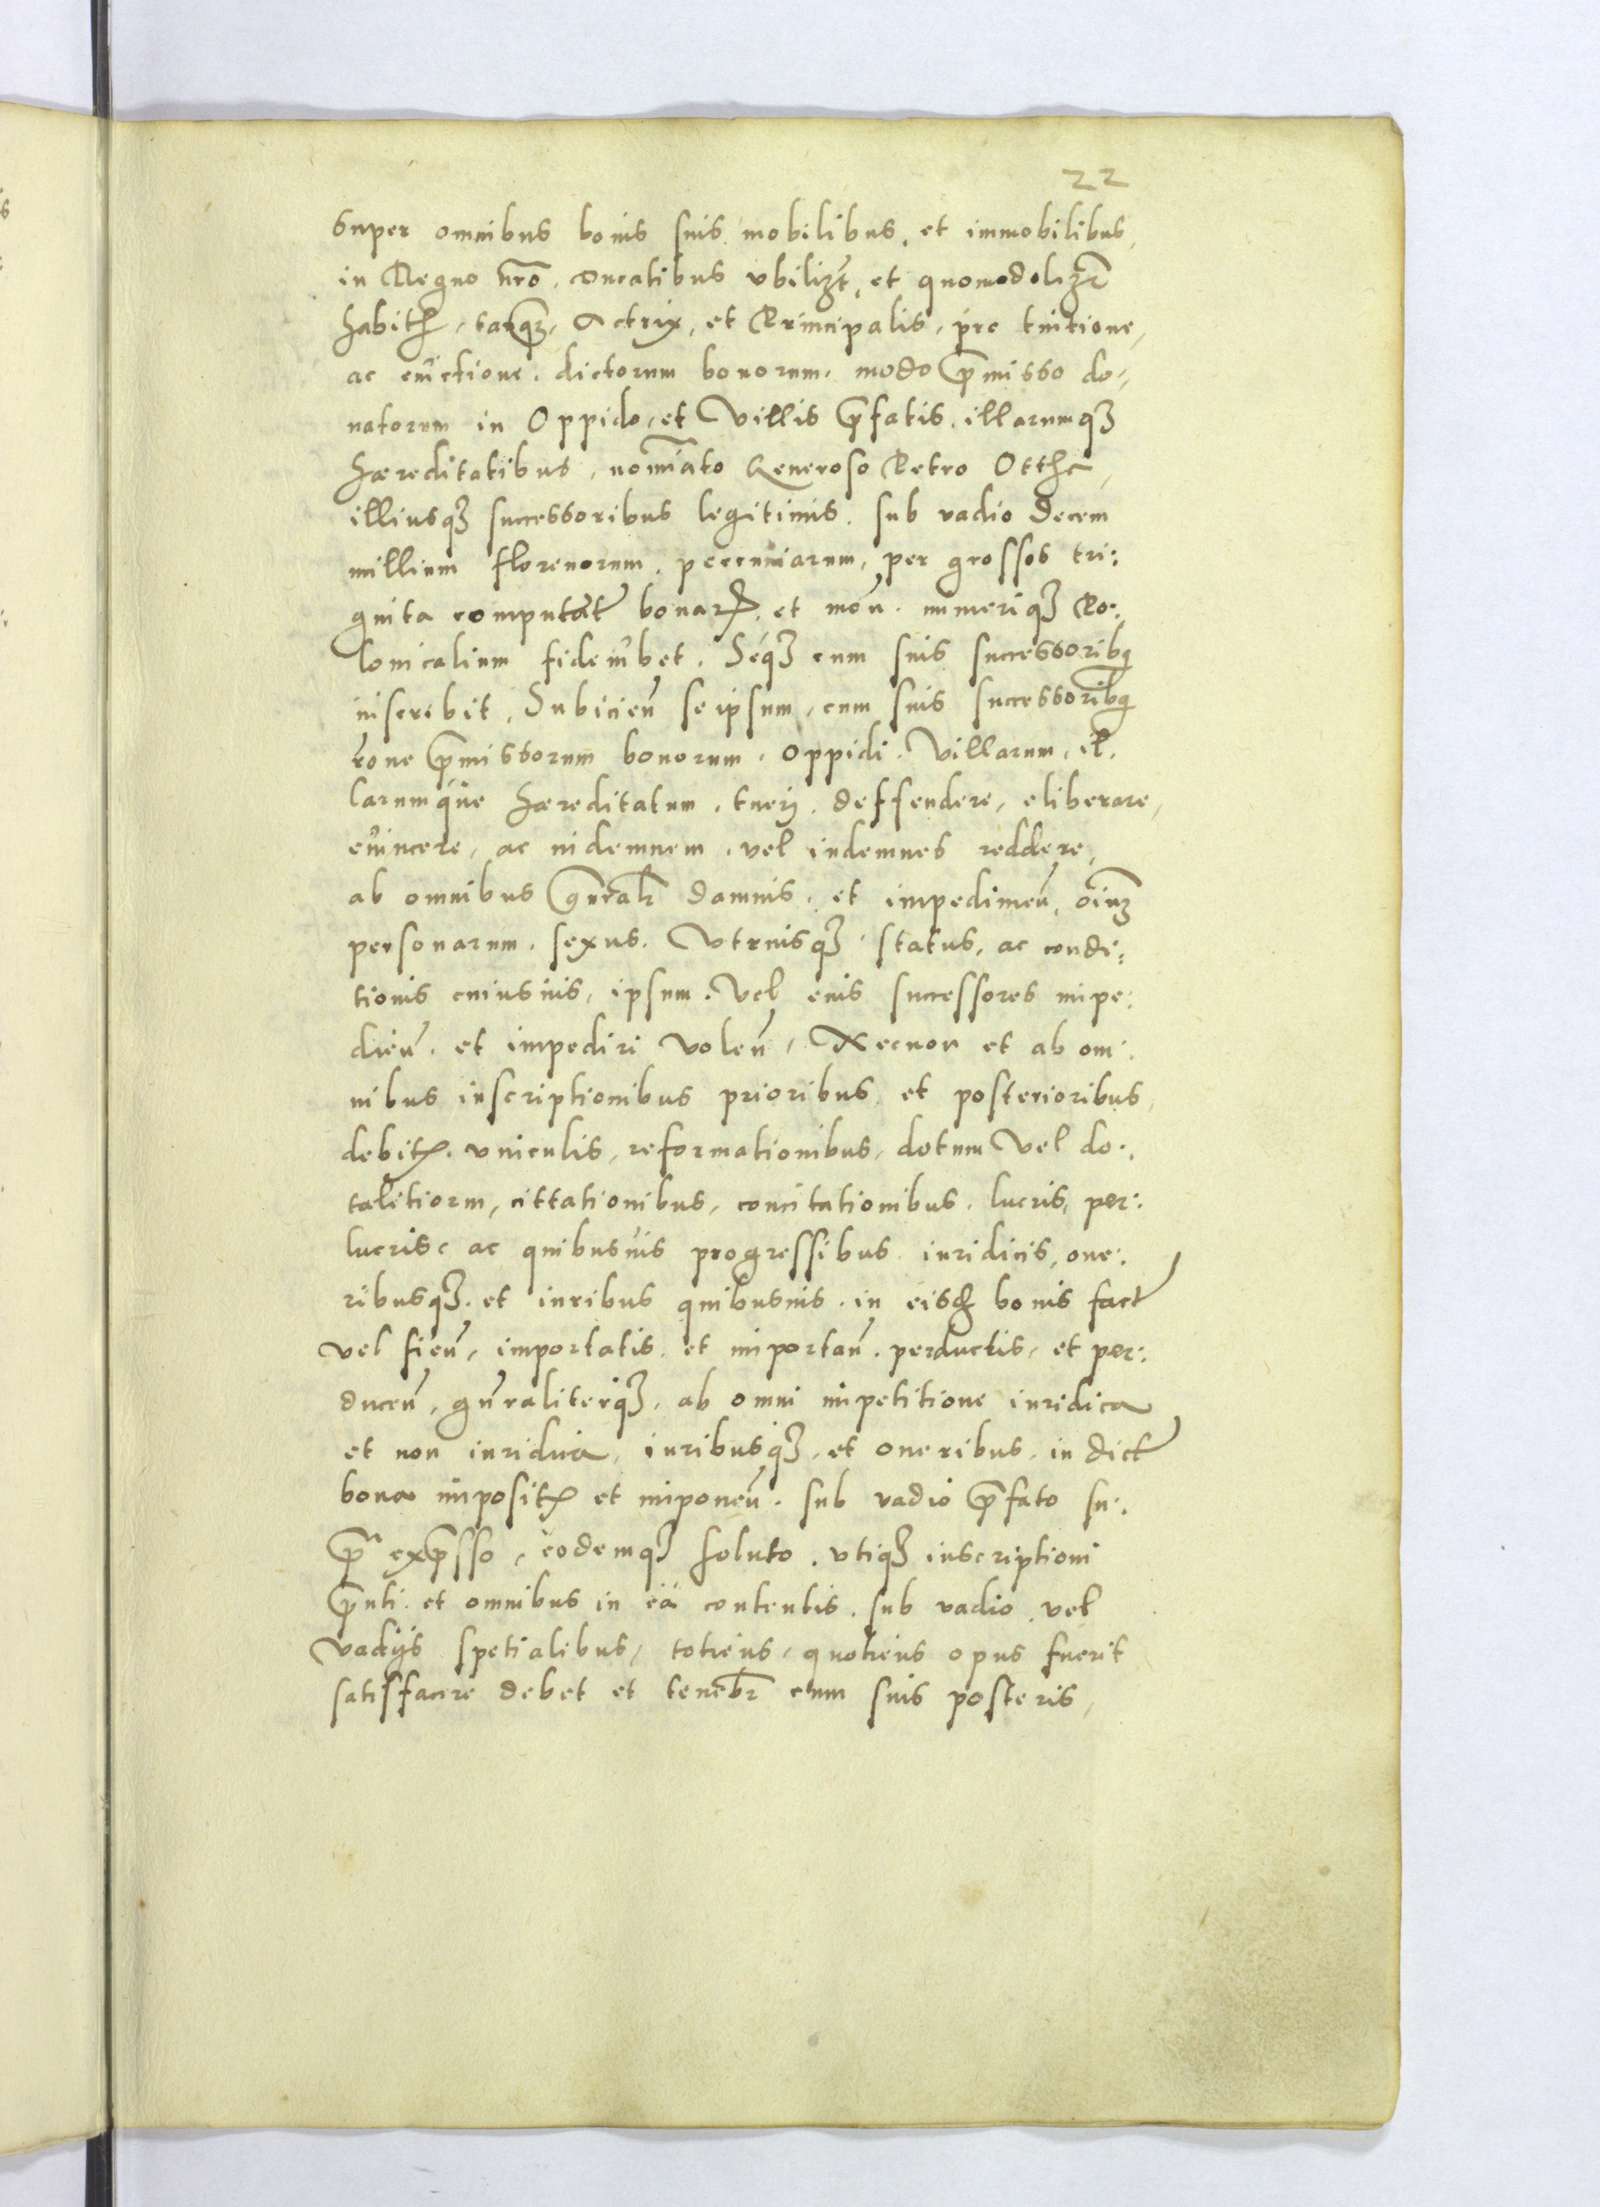 22
Super omnibus bonis suis mobilibus, et immobilibus,
in Regno nr̃o. consatibus vbilizt̃, et quomodolizt̃
habitꝭ, tanqꝫ, Actrix, et Principalis, pro tuitione,
ac euictione. dictorum bonorum. modo p̃misso do-
natorum in Oppido, et Villis p̃fatis. illarumqꝫ
Hæreditatibus, nom̃iato Generoso Petro Otthe,
illiusqꝫ successoribus legitimis. sub vadio Decem
millium florenorum. peccuniarum, per grossos tri:
ginta computat̃ bonarꝝ. et mon̄. numeriqꝫ Po:
lonicalium fideiubet. Séqꝫ cum suis successoribꝫ
inscribit. Subicieñ se ipsum, cum suis successoribꝫ
rõne p̃missorum bonorum. oppidi. Villarum, il.
larumque Hæreditatum. tuerj. deffendere, eliberare,
euincere, ac indemnem. vel indemnes reddere,
ab omnibus gñralr̃ damnis. et impedimeñ, oĩuꝫ
personarum. sexus. Vtriusqꝫ status, ac condi:
tionis cuiusuis, ipsum. Vel euis successores impe:
dieñ. et impediri Voleñ, Necnon et ab om:
nibus inscriptionibus prioribus et posterioribus,
debitꝭ. vniculis, reformationibus, dotum Vel do:
talitiorm, cittationibus, concitationibus. lucris, per:
lucrisc ac quibusuis progressibus iuridicis, one:
ribusqꝫ. et iuribus quibusuis. in eisd̃ bonis fact̃
vel fieñ, importatis. et importañ. perductis, et per:
duceñ, gñraliterqꝫ. ab omni impetitione iuridica
et non iuridica, iuribusqꝫ. et oneribus. in dict̃
bona impositꝭ et imponeñ. sub vadio p̃fato su:
p̃ᵃ exp̃sso, eodemqꝫ soluto. vtiqꝫ inscriptioni
p̃nti. et omnibus in eä contentis. sub vadio vel
vadijs spetialibus, totiens, quotiens opus fuerit
satisfacere debet et tenebr̃ cum suis posteris,